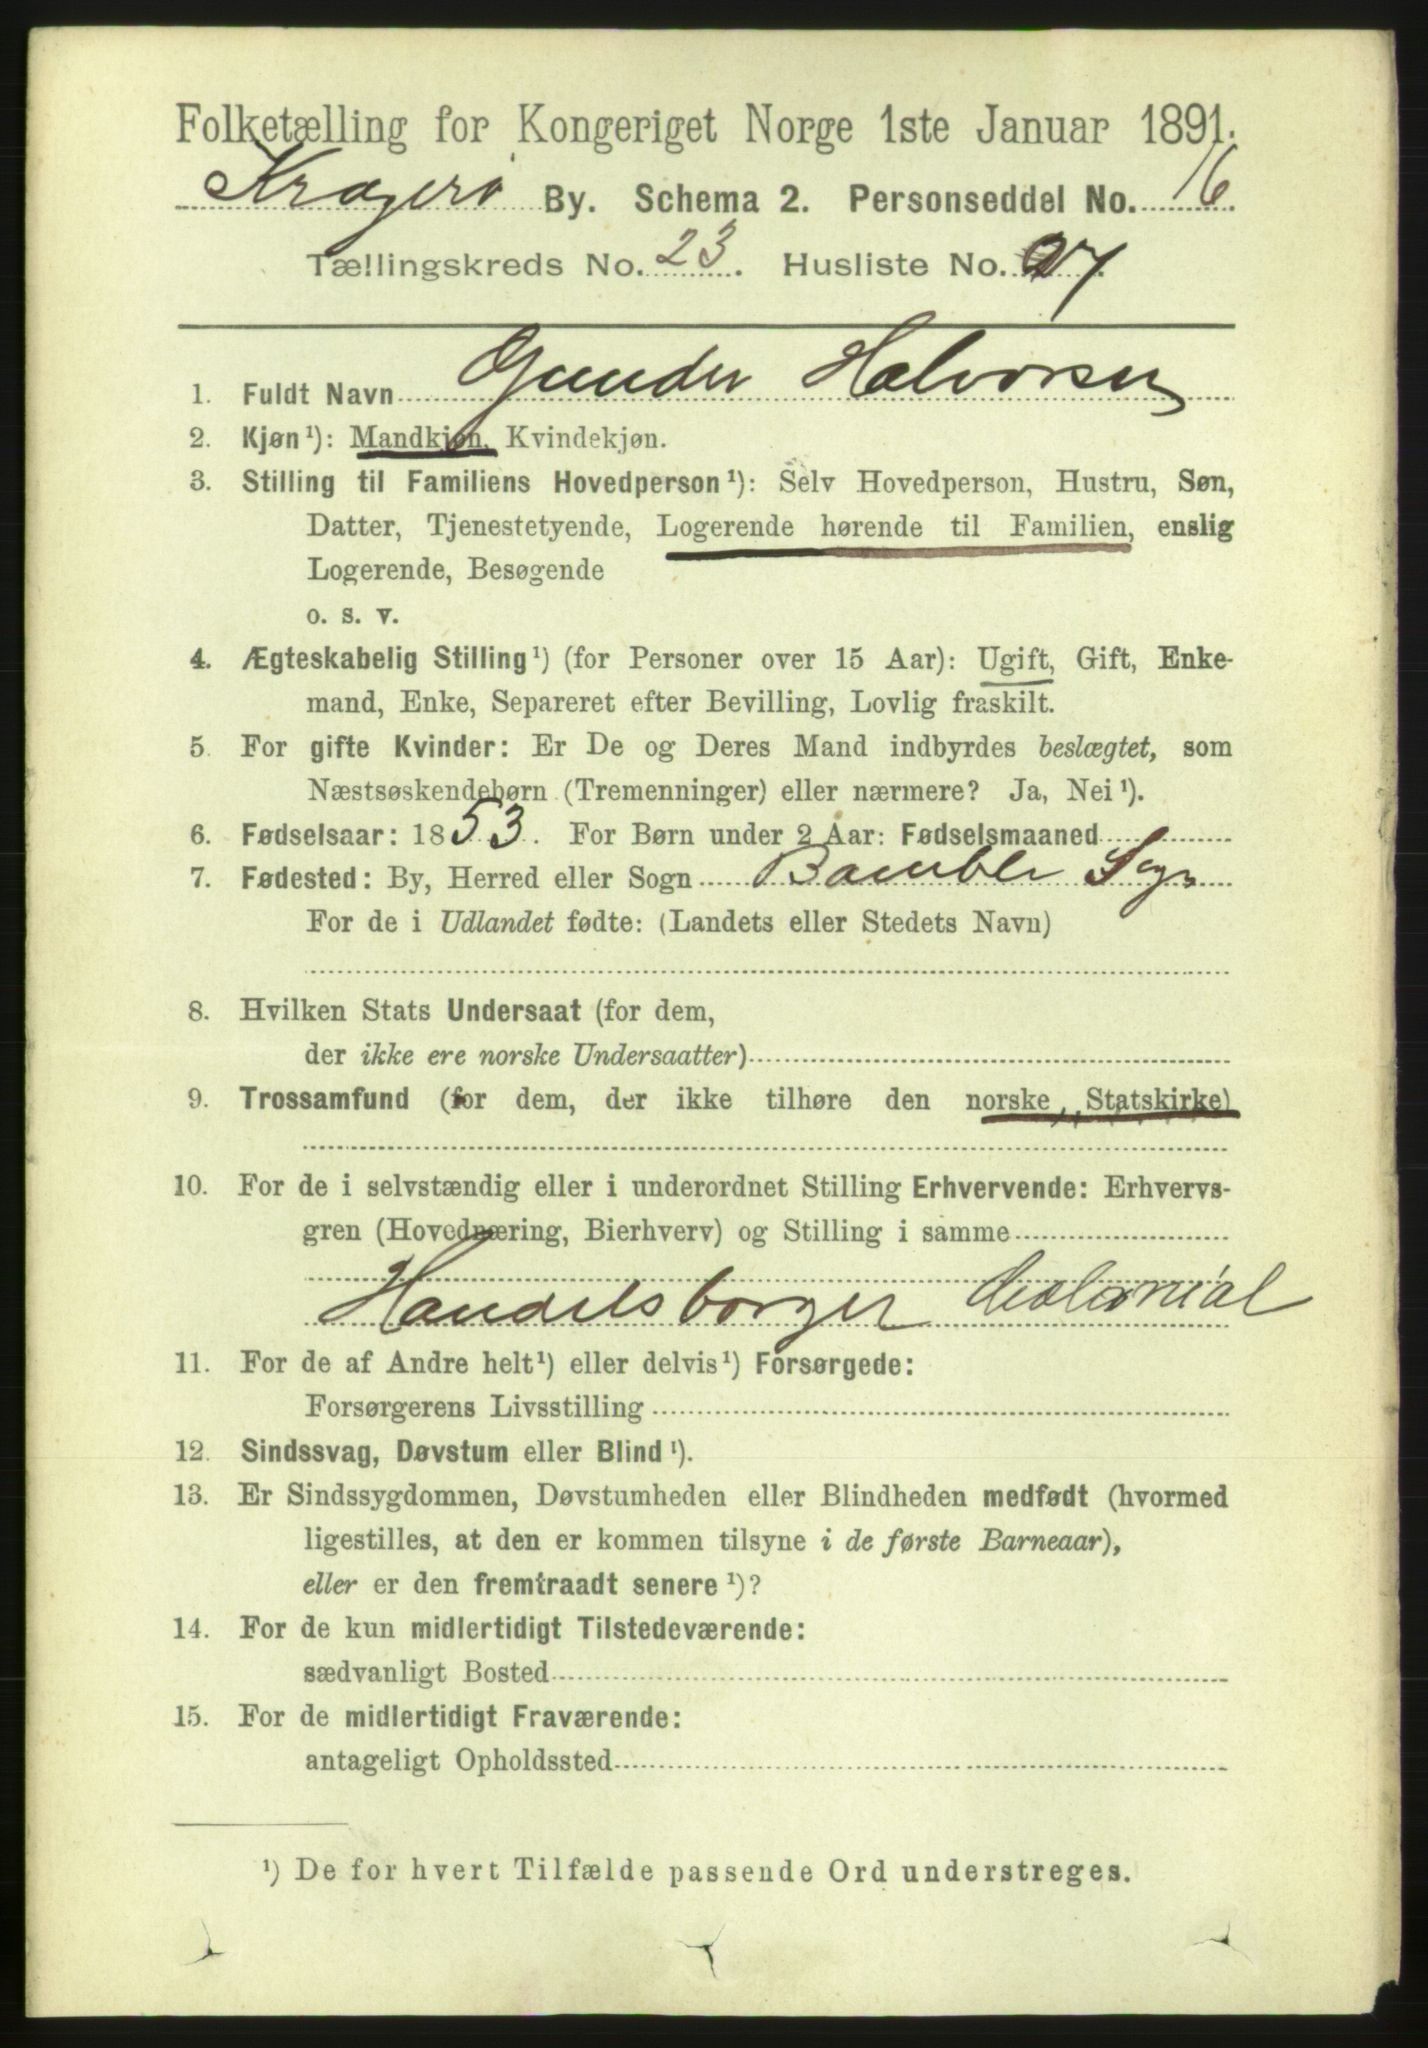 Folketælling for Kongeriget Norge 1ste Januar 1891.
Kragerø By. Schema 2. Personseddel No. 16
Tællingskreds No. 23. Husliste No.
1. Fuldt Navn Gunder Halvorsen
2. Kjøn¹): Mandkjøn, Kvindekjøn.
3. Stilling til Familiens Hovedperson¹): Selv Hovedperson, Hustru, Søn,
Datter, Tjenestetyende, Logerende hørende til Familien, enslig
Logerende, Besøgende
o. s. v.
4. Ægteskabelig Stilling¹) (for Personer over 15 Aar): Ugift, Gift, Enke-
mand, Enke, Separeret efter Bevilling, Lovlig fraskilt.
5. For gifte Kvinder: Er De og Deres Mand indbyrdes beslægtet, som
Næstsøskendebørn (Tremenninger) eller nærmere? Ja, Nei¹).
6. Fødselsaar: 1853. For Børn under 2 Aar: Fødselsmaaned
7. Fødested: By, Herred eller Sogn Bamble Sogn
For de i Udlandet fødte: (Landets eller Stedets Navn)
8. Hvilken Stats Undersaat (for dem,
der ikke ere norske Undersaatter)
9. Trossamfund (for dem, der ikke tilhøre den norske Statskirke)
10. For de i selvstændig eller i underordnet Stilling Erhvervende: Erhvervs-
gren (Hovednæring, Bierhverv) og Stilling i samme
Handelsborger Colonial
11. For de af Andre helt¹) eller delvis¹) Forsørgede:
Forsørgerens Livsstilling
12. Sindssvag, Døvstum eller Blind¹).
13. Er Sindssygdommen, Døvstumheden eller Blindheden medfødt (hvormed
ligestilles, at den er kommen tilsyne i de første Barneaar),
eller er den fremtraadt senere¹)?
14. For de kun midlertidigt Tilstedeværende:
sædvanligt Bosted
15. For de midlertidigt Fraværende:
antageligt Opholdssted
¹) De for hvert Tilfælde passende Ord understreges.